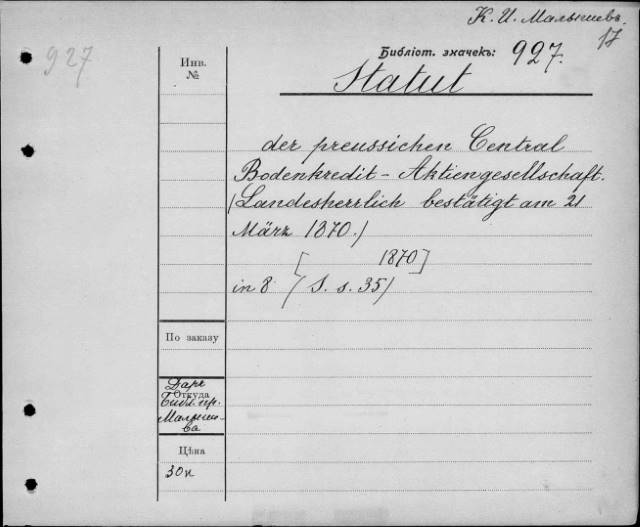 К. И. Малышевъ.
17
927
Инв.
№
Библіот. значекъ: 927.
Statut
der preussichen Central
Bodenkredit - Aktiengesellschaft.
(Landesherrlich bestätigt am 21
März 1870.)
[ 1870]
in 8 / S. s. 35/
По заказу
Откуда
Даръ
Библ. пр.
Малыше-
ва
Цѣна
30к